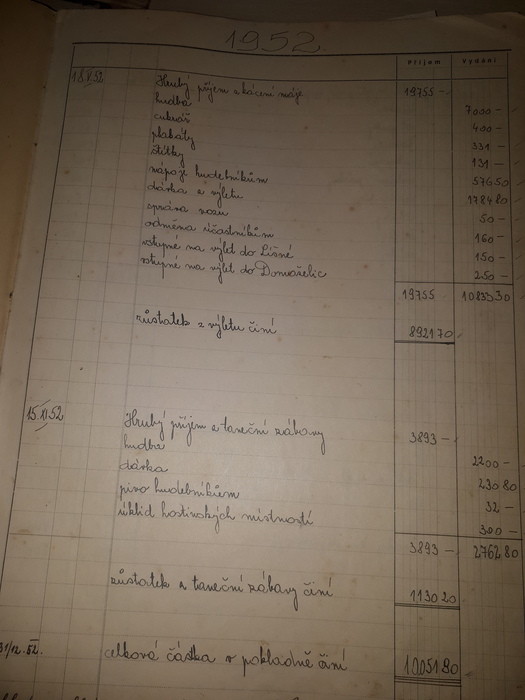 1952
Příjem Vydání
18.V.52 Hrubý příjem z kácení máje 19755 –
hudba 7000 –
cukrář 400 –
plakáty 331 –
štítky 131 –
nápoje hudebníkům 576 50
dávka z výletu 1784 80
správa vozu 50 –
odměna účastníkům 160 –
vstupné na výlet do Líšné 150 –
vstupné na výlet do Domaželic 250 –
19755 10833 30
zůstatek z výletu činí 8921 70
15.XI.52 Hrubý příjem z taneční zábavy 3893 –
hudba 2200 –
dávka 230 80
pivo hudebníkům 32 –
úklid hostinských místností 300 –
3893 – 2762 80
zůstatek z taneční zábavy činí 1130 20
31/12.52. celková částka v pokladně činí 10051 80